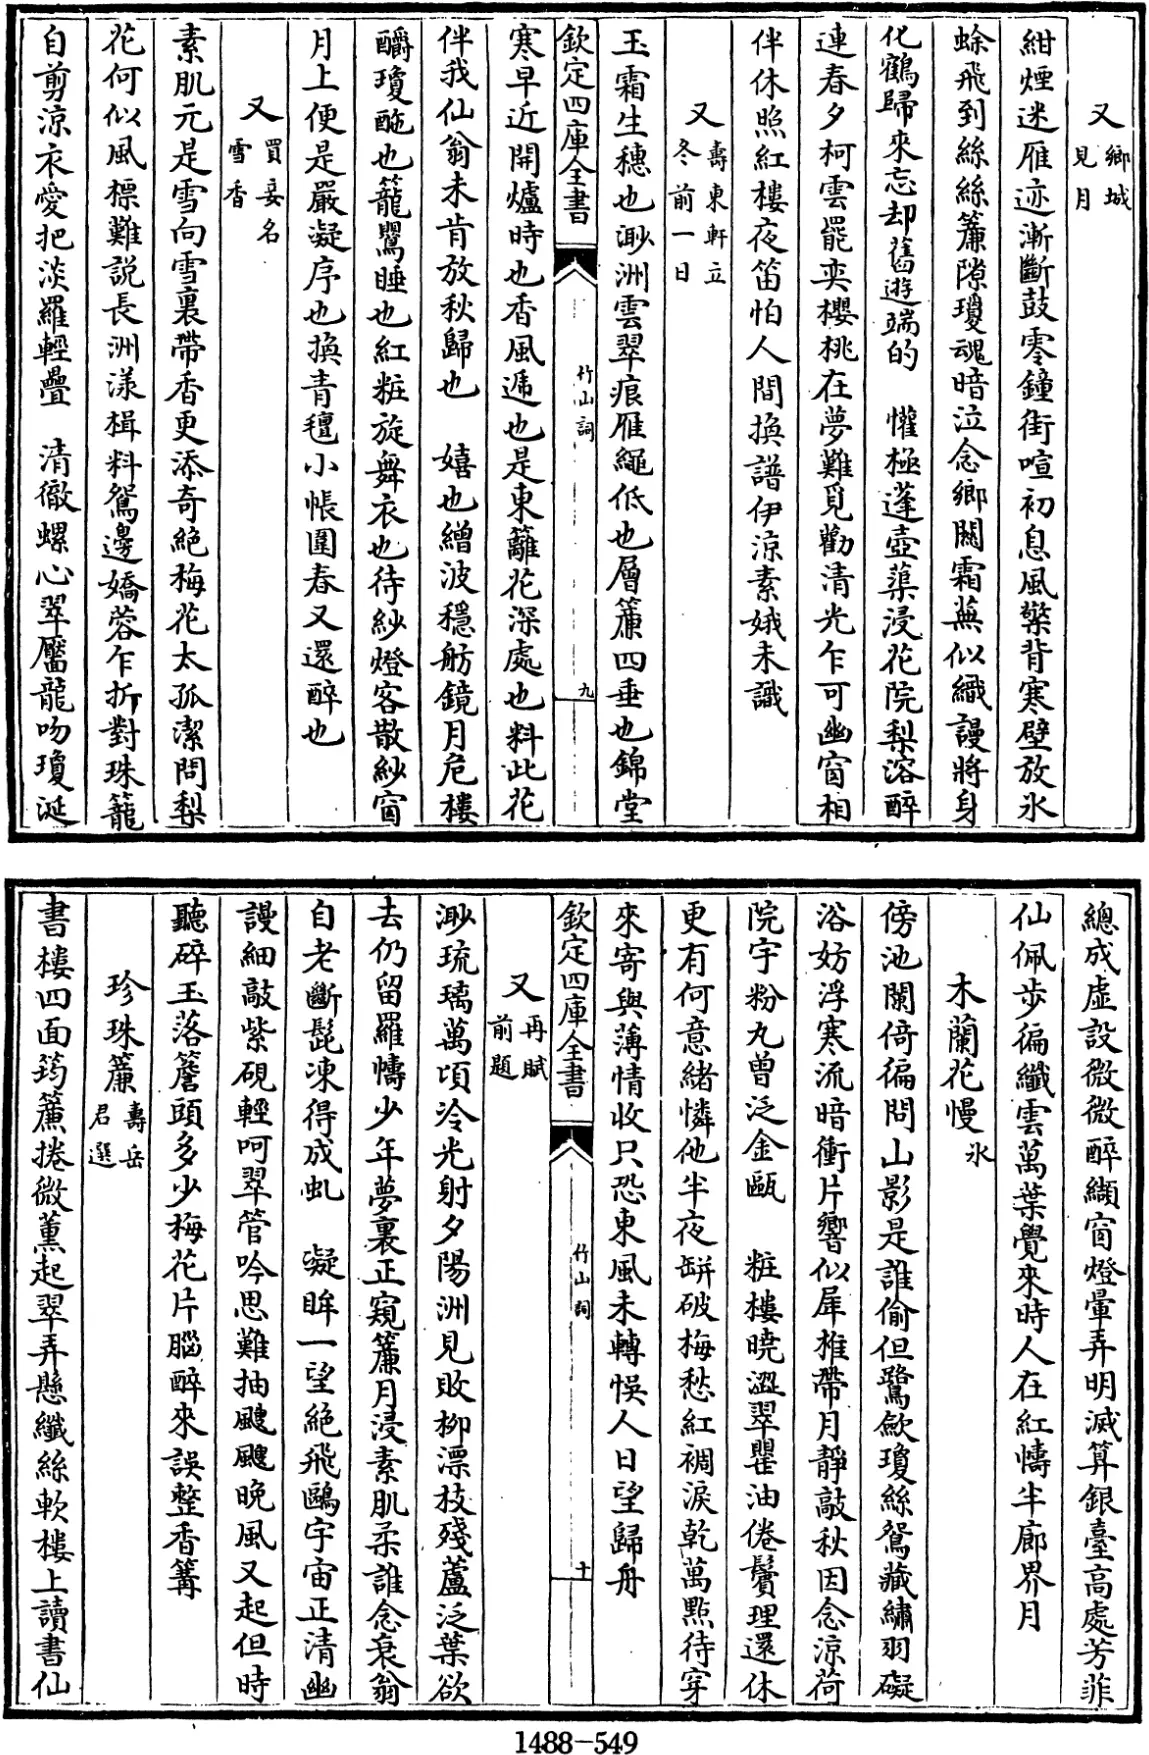 又鄉城見月
紺煙迷雁迹漸斷鼓零鐘街喧初息風檠背寒壁放氷
蜍飛到絲絲簾隙瓊魂暗泣念鄉闗霜蕪似織謾將身
化鶴歸來忘却舊遊端的　懽極蓬壺蕖浸花院梨溶醉
連春夕柯雲罷奕櫻桃在夢難覓勸清光乍可幽窗相
伴休照紅樓夜笛怕人間換譜伊涼素娥未識
又壽東軒立冬前一日
玉霜生穗也渺洲雲翠痕雁繩低也層簾四垂也錦堂
欽定四庫全書
竹山詞
九
寒早近開爐時也香風遞也是東籬花深處也料此花
伴我仙翁未肯放秋歸也　嬉也繒波穩舫鏡月危樓
釂瓊酏也籠鸎睡也紅粧旋舞衣也待紗燈客散紗窗
月上便是嚴凝序也換青氊小帳圍春又還醉也
又買妾名雪香
素肌元是雪向雪裏帶香更添奇絶梅花太孤潔問梨
花何似風標難説長洲漾楫料鴛邊嬌蓉乍折對珠籠
自剪涼衣愛把淡羅輕疊　清徹螺心翠靨龍吻瓊涎
總成虛設微微醉纈窗燈暈弄明滅算銀臺高處芳菲
仙佩步徧纖雲萬葉覺來時人在紅幬半廊界月
木蘭花慢氷
傍池闌倚徧問山影是誰偷但鷺歛瓊絲鴛藏繡羽礙
浴妨浮寒流暗衝片響似犀椎帶月靜敲秋因念涼荷
院宇粉丸曾泛金甌　粧樓曉澀翠罌油倦鬢理還休
更有何意緒憐他半夜缾破梅愁紅裯淚乾萬㸃待穿
來寄與薄情收只恐東風未轉悞人日望歸舟
欽定四庫全書
竹山詞
十
又再賦前題
渺琉璃萬頃冷光射夕陽洲見敗柳漂枝殘蘆泛葉欲
去仍留羅幬少年夢裏正窺簾月浸素肌柔誰念衰翁
自老斷髭凍得成虬　凝眸一望絶飛鷗宇宙正清幽
謾細敲紫硯輕呵翠管吟思難抽颼颼晚風又起但時
聽碎玉落簷頭多少梅花片腦醉來誤整香篝
珍珠簾壽岳君選
書樓四面筠簾捲微薰起翠弄懸纖絲軟樓上讀書仙
1488-549